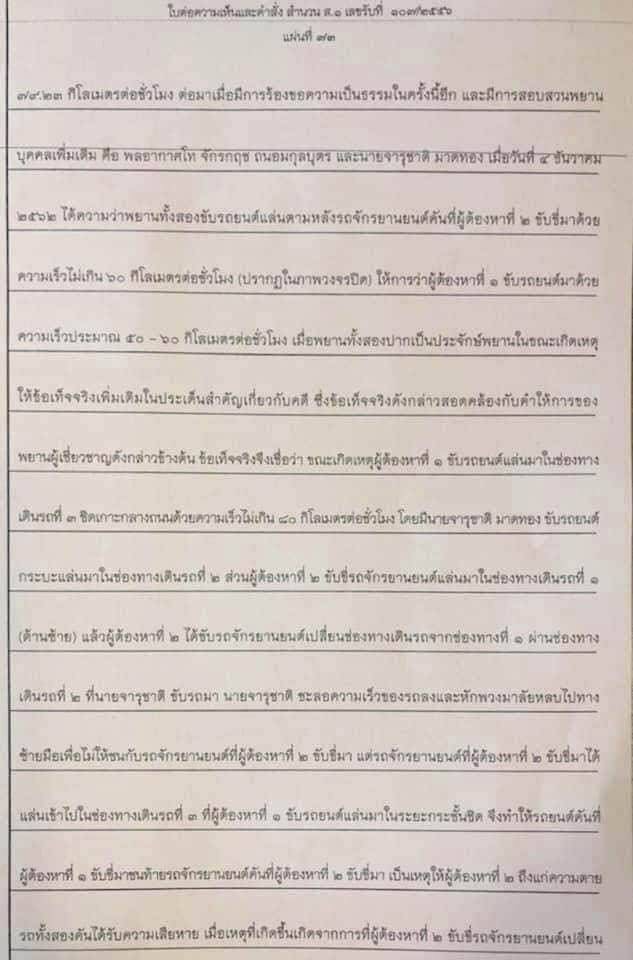 ใบต่อความเห็นและคำสั่ง สำนวน ส.๑ เลขรับที่ ๑๐๗/๒๕๕๖
แผ่นที่ ๗๓
๗๙.๒๓ กิโลเมตรต่อชั่วโมง ต่อมาเมื่อมีการร้องขอความเป็นธรรมในครั้งนี้อีก และมีการสอบสวนพยาน
บุคคลเพิ่มเติม คือ พลอากาศโท จักรกฤช ถนอมกุลบุตร และนายจารุชาติ มาดทอง เมื่อวันที่ ๔ ธันวาคม
๒๕๖๒ ได้ความว่าพยานทั้งสองขับรถยนต์แล่นตามหลังรถจักรยานยนต์คันที่ผู้ต้องหาที่ ๒ ขับขี่มาด้วย
ความเร็วไม่เกิน ๖๐ กิโลเมตรต่อชั่วโมง (ปรากฏในภาพวงจรปิด) ให้การว่าผู้ต้องหาที่ ๑ ขับรถยนต์มาด้วย
ความเร็วประมาณ ๕๐ - ๖๐ กิโลเมตรต่อชั่วโมง เมื่อพยานทั้งสองปากเป็นประจักษ์พยานในขณะเกิดเหตุ
ให้ข้อเท็จจริงเพิ่มเติมในประเด็นสำคัญเกี่ยวกับคดี ซึ่งข้อเท็จจริงดังกล่าวสอดคล้องกับคำให้การของ
พยานผู้เชี่ยวชาญดังกล่าวข้างต้น ข้อเท็จจริงจึงเชื่อว่า ขณะเกิดเหตุผู้ต้องหาที่ ๑ ขับรถยนต์แล่นมาในช่องทาง
เดินรถที่ ๓ ชิดเกาะกลางถนนด้วยความเร็วไม่เกิน ๘๐ กิโลเมตรต่อชั่วโมง โดยมีนายจารุชาติ มาดทอง ขับรถยนต์
กระบะแล่นมาในช่องทางเดินรถที่ ๒ ส่วนผู้ต้องหาที่ ๒ ขับขี่รถจักรยานยนต์แล่นมาในช่องทางเดินรถที่ ๑
(ด้านซ้าย) แล้วผู้ต้องหาที่ ๒ ได้ขับรถจักรยานยนต์เปลี่ยนช่องทางเดินรถจากช่องทางที่ ๑ ผ่านช่องทาง
เดินรถที่ ๒ ที่นายจารุชาติ ขับรถมา นายจารุชาติ ชะลอความเร็วของรถลงและหักพวงมาลัยหลบไปทาง
ซ้ายมือเพื่อไม่ให้ชนกับรถจักรยานยนต์ที่ผู้ต้องหาที่ ๒ ขับขี่มา แต่รถจักรยานยนต์ที่ผู้ต้องหาที่ ๒ ขับขี่มาได้
แล่นเข้าไปในช่องทางเดินรถที่ ๓ ที่ผู้ต้องหาที่ ๑ ขับรถยนต์แล่นมาในระยะกระชั้นชิด จึงทำให้รถยนต์คันที่
ผู้ต้องหาที่ ๑ ขับขี่มาชนท้ายรถจักรยานยนต์คันที่ผู้ต้องหาที่ ๒ ขับขี่มา เป็นเหตุให้ผู้ต้องหาที่ ๒ ถึงแก่ความตาย
รถทั้งสองคันได้รับความเสียหาย เมื่อเหตุที่เกิดขึ้นเกิดจากการที่ผู้ต้องหาที่ ๒ ขับขี่รถจักรยานยนต์เปลี่ยน